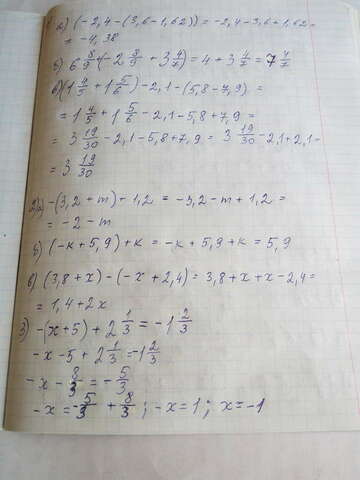 1 а) (-2,4-(3,6-1,62)) = -2,4-3,6+1,62=
= -4,38
б) 6 8/9 + (-2 8/9 + 3 4/7) = 4 + 3 4/7 = 7 4/7
в) (1 4/5 + 1 5/6) - 2,1 - (5,8 - 7,9) =
= 1 4/5 + 1 5/6 - 2,1 - 5,8 + 7,9 =
= 3 19/30 - 2,1 - 5,8 + 7,9 = 3 19/30 - 2,1 + 2,1 =
= 3 19/30
2) а) -(3,2+m)+1,2 = -3,2-m+1,2 =
= -2-m
б) (-к+5,9)+к = -к+5,9+к = 5,9
в) (3,8+x)-(-x+2,4) = 3,8+x+x-2,4=
= 1,4+2x
3) -(x+5)+2 1/3 = -1 2/3
-x-5+2 1/3 = -1 2/3
-x - 8/3 = -5/3
-x = -5/3 + 8/3; -x=1; x=-1